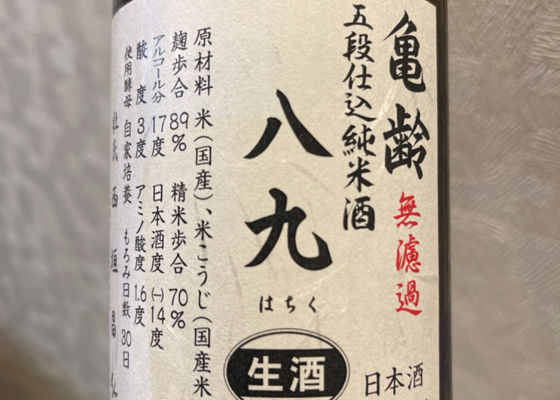 亀齢
無濾過
五段仕込純米酒
八九
はちく
生酒
日本酒
原材料 米(国産)、米こうじ(国産米
麹歩合 89% 精米歩合 70%
アルコール分 17度 日本酒度 (−)14度
酸度 3度 アミノ酸度 1.6度
使用酵母 自家培養 もろみ日数 30日